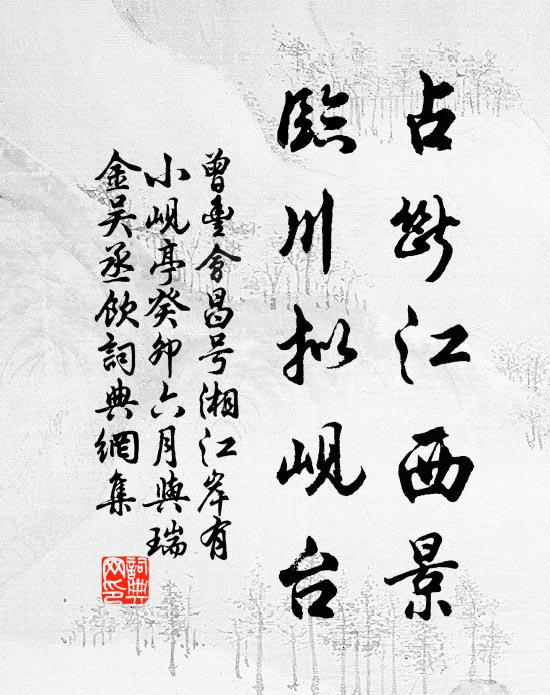 占断江西景
臨川拟峴台
曾豊會昌号湘江岸有
小峴亭癸卯六月與瑞
金吴丞飲詞典網集
詞典网印